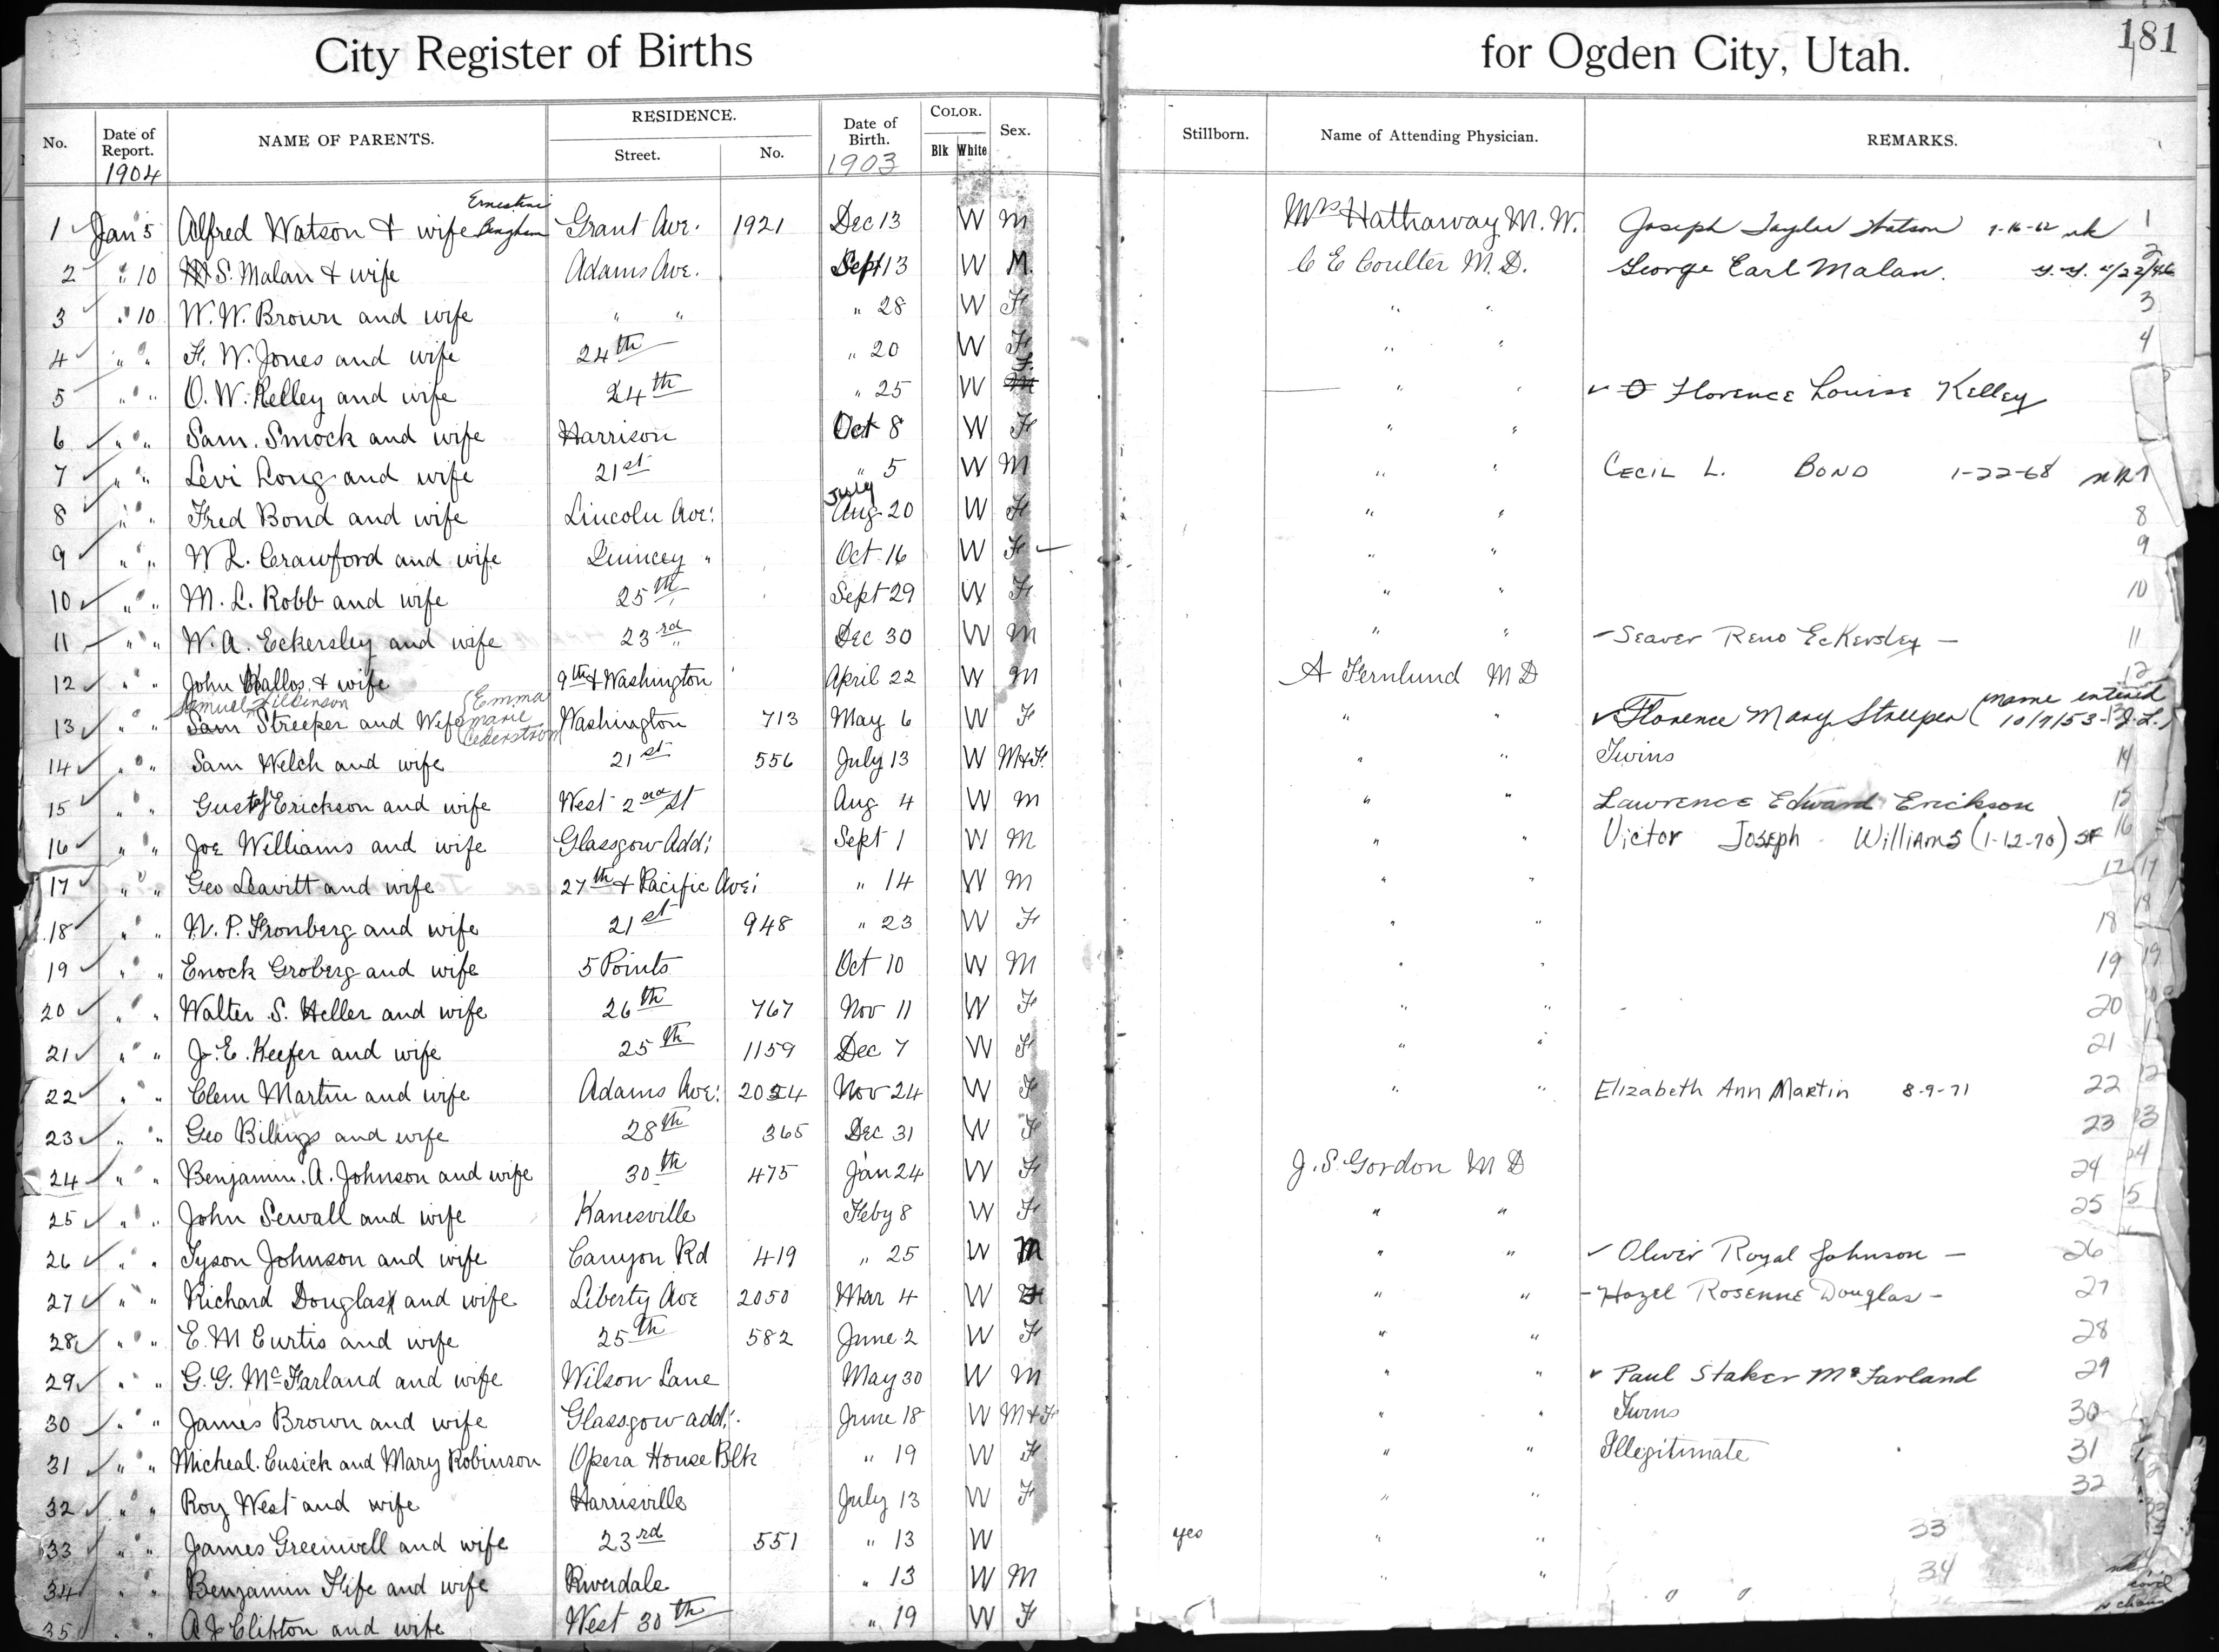 181
City Register of Births for Ogden City, Utah.
No. Date of Report. NAME OF PARENTS. RESIDENCE. Street. No. Date of Birth. COLOR. Blk White Sex. Stillborn. Name of Attending Physician. REMARKS.
1904 1903
Ernestine
1 Jan 5 Alfred Watson & wife Bingham Grant Ave. 1921 Dec 13 W M Mrs Hathaway M.W. Joseph Taylor Watson 1
2 " 10 S. Malan & wife Adams Ave. Sept 13 W M. C E Coulter M.D. George Earl Malan. 2
3 " 10 W. W. Brown and wife " " " 28 W F " " 3
4 " " F. W. Jones and wife 24th " 20 W F " " 4
5 " " O. W. Kelley and wife 24th " 25 W F. " " Florence Louise Kelley
6 " " Sam. Smock and wife Harrison Oct 8 W F " "
7 " " Levi Long and wife 21st " 5 W M " " CECIL L. BOND 1-22-68
July
8 " " Fred Bond and wife Lincoln Ave. Aug 20 W F " " 8
9 " " W L. Crawford and wife Quincey " Oct 16 W F " " 9
10 " " M. L. Robb and wife 25th Sept 29 W F " " 10
11 " " W. A. Eckersley and wife 23rd Dec 30 W M " " Seaver Reno Eckersley 11
12 " " John Kallos & wife 9th & Washington April 22 W M A Fernlund M D 12
Samuel Wilkinson Emma Marie Cederstrom
13 " " Sam Streeper and Wife Washington 713 May 6 W F " " Florence Mary Streeper (name entered 10/7/53 J.L.) 13
14 " " Sam Welch and wife 21st 556 July 13 W M & F. " " Twins 14
15 " " Gustaf Erickson and wife West 2nd St Aug 4 W M " " Lawrence Edward Erickson 15
16 " " Joe Williams and wife Glassgow Add. Sept 1 W M " " Victor Joseph Williams (1-12-70) SF 16
17 " " Geo Leavitt and wife 27th & Pacific Ave. " 14 W M " " 17 17
18 " " N. P. Fronberg and wife 21st 948 " 23 W F " " 18 18
19 " " Enock Groberg and wife 5 Points Oct 10 W M " " 19 19
20 " " Walter S. Heller and wife 26th 767 Nov 11 W F " " 20
21 " " J. E. Keefer and wife 25th 1159 Dec 7 W F " " 21
22 " " Clem Martin and wife Adams Ave. 2024 Nov 24 W F " " Elizabeth Ann Martin 8-9-71 22
23 " " Geo Bilings and wife 28th 365 Dec 31 W F 23
24 " " Benjamin. A. Johnson and wife 30th 475 Jan 24 W F J. S. Gordon M D 24
25 " " John Sewall and wife Kanesville Feby 8 W F " " 25
26 " " Tyson Johnson and wife Canyon Rd 419 " 25 W M " " Oliver Royal Johnson 26
27 " " Richard Douglas and wife Liberty Ave 2050 Mar 4 W F " " Hazel Rosenne Douglas 27
28 " " E. M Curtis and wife 25th 582 June 2 W F " " 28
29 " " G. G. McFarland and wife Wilson Lane May 30 W M " " Paul Staker McFarland 29
30 " " James Brown and wife Glassgow add. June 18 W M & F " " Twins 30
31 " " Micheal Cusick and Mary Robinson Opera House Blk " 19 W F " " Illegitimate 31
32 " " Roy West and wife Harrisville July 13 W F " " 32
33 " " James Greenwell and wife 23rd 551 " 13 W yes " " 33
34 " " Benjamin Fife and wife Riverdale " 13 W M " " 34
35 " " A J Clifton and wife West 30th " 19 W F